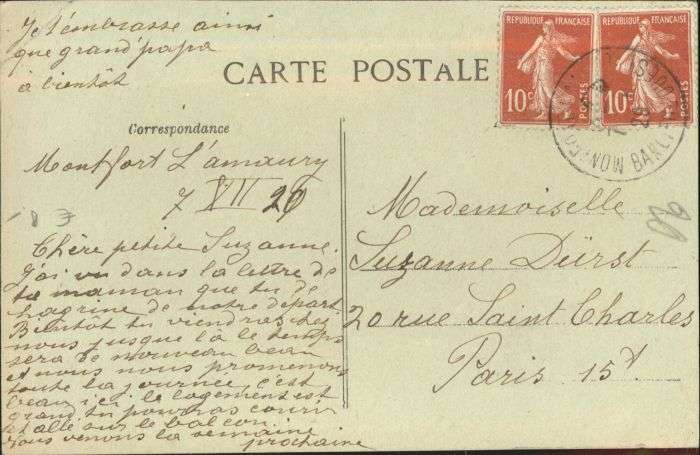 Je t'embrasse ainsi
que grand'papa
à bientôt
CARTE POSTALE
Correspondance
REPUBLIQUE FRANÇAISE
10c
POSTES
REPUBLIQUE FRANÇAISE
10c
POSTES
Montfort L'amaury
7 VII 20
Chère petite Suzanne.
J'ai vu dans la lettre de
ta maman que tu de
hagrine de notre départ.
Bientôt tu viendras chez
nous jusque là le temps
sera de nouveau beau
et nous nous promenons
toute la journée, c'est
beau ici, le logement est
grand tu pourras courir
et alle sur le balcon.
vous venons la semaine
prochaine
Mademoiselle
Suzanne Dürst
20 rue Saint Charles
Paris 15